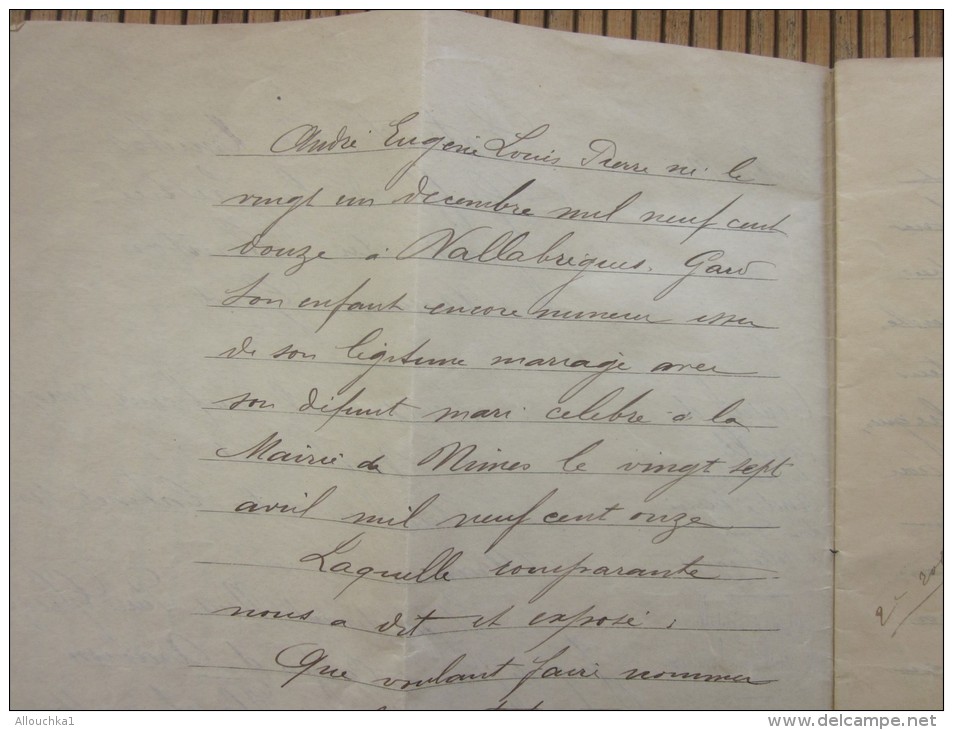 André Eugène Louis Pierre né le
vingt un décembre mil neuf cent
douze à Vallabrègues, Gard
son enfant encore mineur issu
de son légitime mariage avec
son défunt mari célébré à la
Mairie de Nimes le vingt sept
avril mil neuf cent onze
Laquelle comparante
nous a dit et exposé :
Que voulant faire nommer
2e
Allouchka1
www.delcampe.net